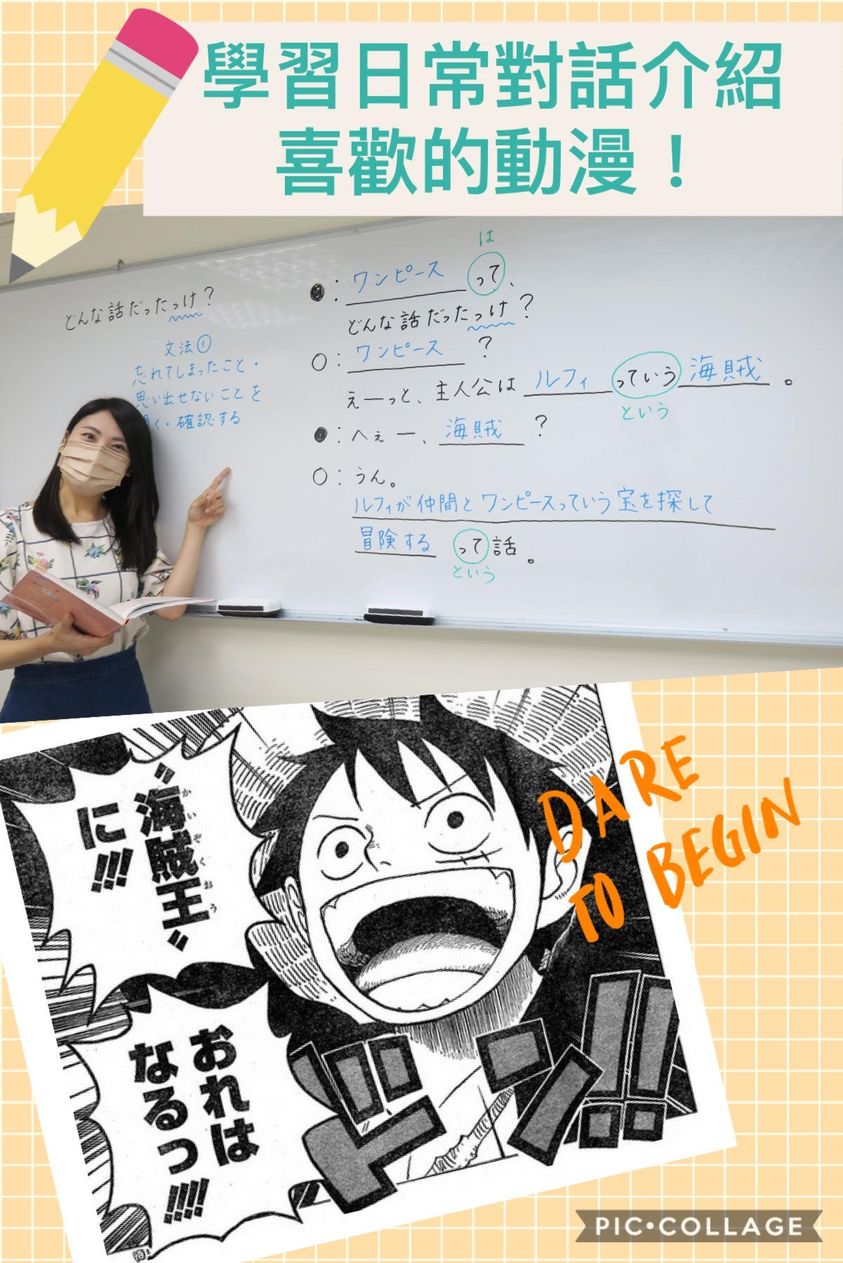 學習日常對話介紹
喜歡的動漫！
どんな話だったっけ？
文法①
忘れてしまったこと・
思い出せないことを
く・確認する
は
●：ワンピースって、
どんな話だったっけ？
○：ワンピース？
えーっと、主人公はルフィっていう海賊。
という
●：へぇー、海賊？
○：うん。
ルフィが仲間とワンピースっていう宝を探して
冒険するって話。
という
"海賊王"
かいぞくおう
に!!!
おれは
なるっ!!!!
ドン!!
DARE
TO BEGIN
PIC•COLLAGE